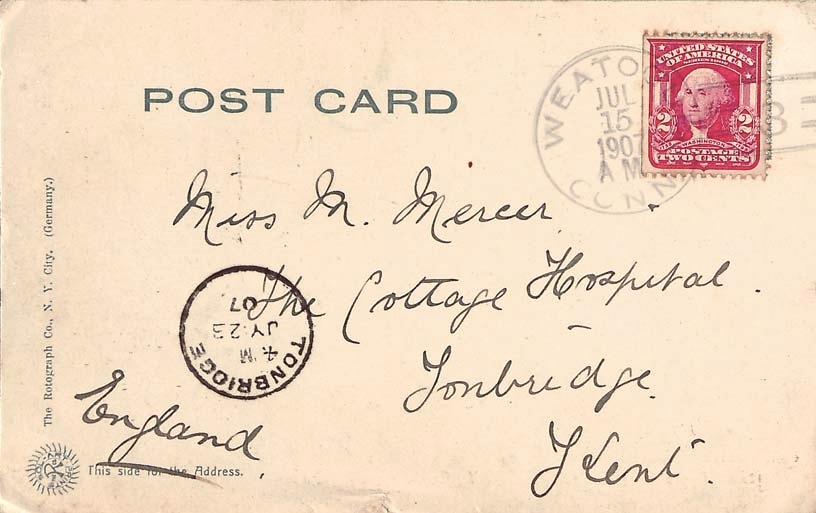 POST CARD
WEATO
JUL
15
1907
A M
CONN
3
UNITED STATES
OF AMERICA
2 2
WASHINGTON
POSTAGE
TWO CENTS
Miss M. Mercer
The Cottage Hospital.
Tonbridge.
Kent.
England.
TONBRIDGE
4. M
JY 23
07
The Rotograph Co., N. Y. City. (Germany.)
This side for the Address.